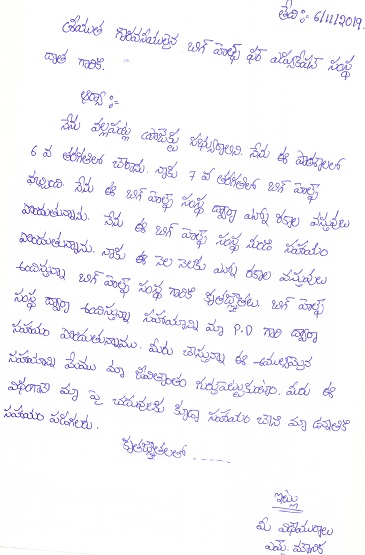 తేది :- 6/11/2019.
శ్రీయుత గౌరవనీయులైన బిగ్ హెల్ప్ ఫర్ ఎడ్యుకేషన్ సంస్థ
దాత గారికి.
ఆర్యా :-
నేను వల్లపట్ల యొక్క విద్యార్థిని. నేను ఈ పాఠశాలలో
6 వ తరగతిలో చేరాను. నాకు 7 వ తరగతిలో బిగ్ హెల్ప్
వచ్చింది. నేను ఈ బిగ్ హెల్ప్ సంస్థ ద్వారా ఎన్నో రకాల వస్తువులు
పొందుతున్నాను. నేను ఈ బిగ్ హెల్ప్ సంస్థ నుండి సహాయం
పొందుతున్నాను. నాకు ఈ నెల నెలకు ఎన్నో రకాల వస్తువులు
ఉయిస్తున్నా బిగ్ హెల్ప్ సంస్థ గారికి కృతజ్ఞతలు. బిగ్ హెల్ప్
సంస్థ ద్వారా ఉయిస్తున్నా సహాయాన్ని మా P.D గారి ద్వారా
సహాయం పొందుతున్నాము. మీరు చేస్తున్నా ఈ అమూల్యమైన
సహాయాన్ని మేము మా జీవితాంతం గుర్తుపెట్టుకుంటాం. మీరు ఈ
విధంగానే మా పై చదువులకు కూడా సహాయం చేసి మా ఉన్నతికి
సహాయం పడగలరు.
కృతజ్ఞతలతో -----
ఇట్లు
మీ విధేయురాలు
మౌనిక